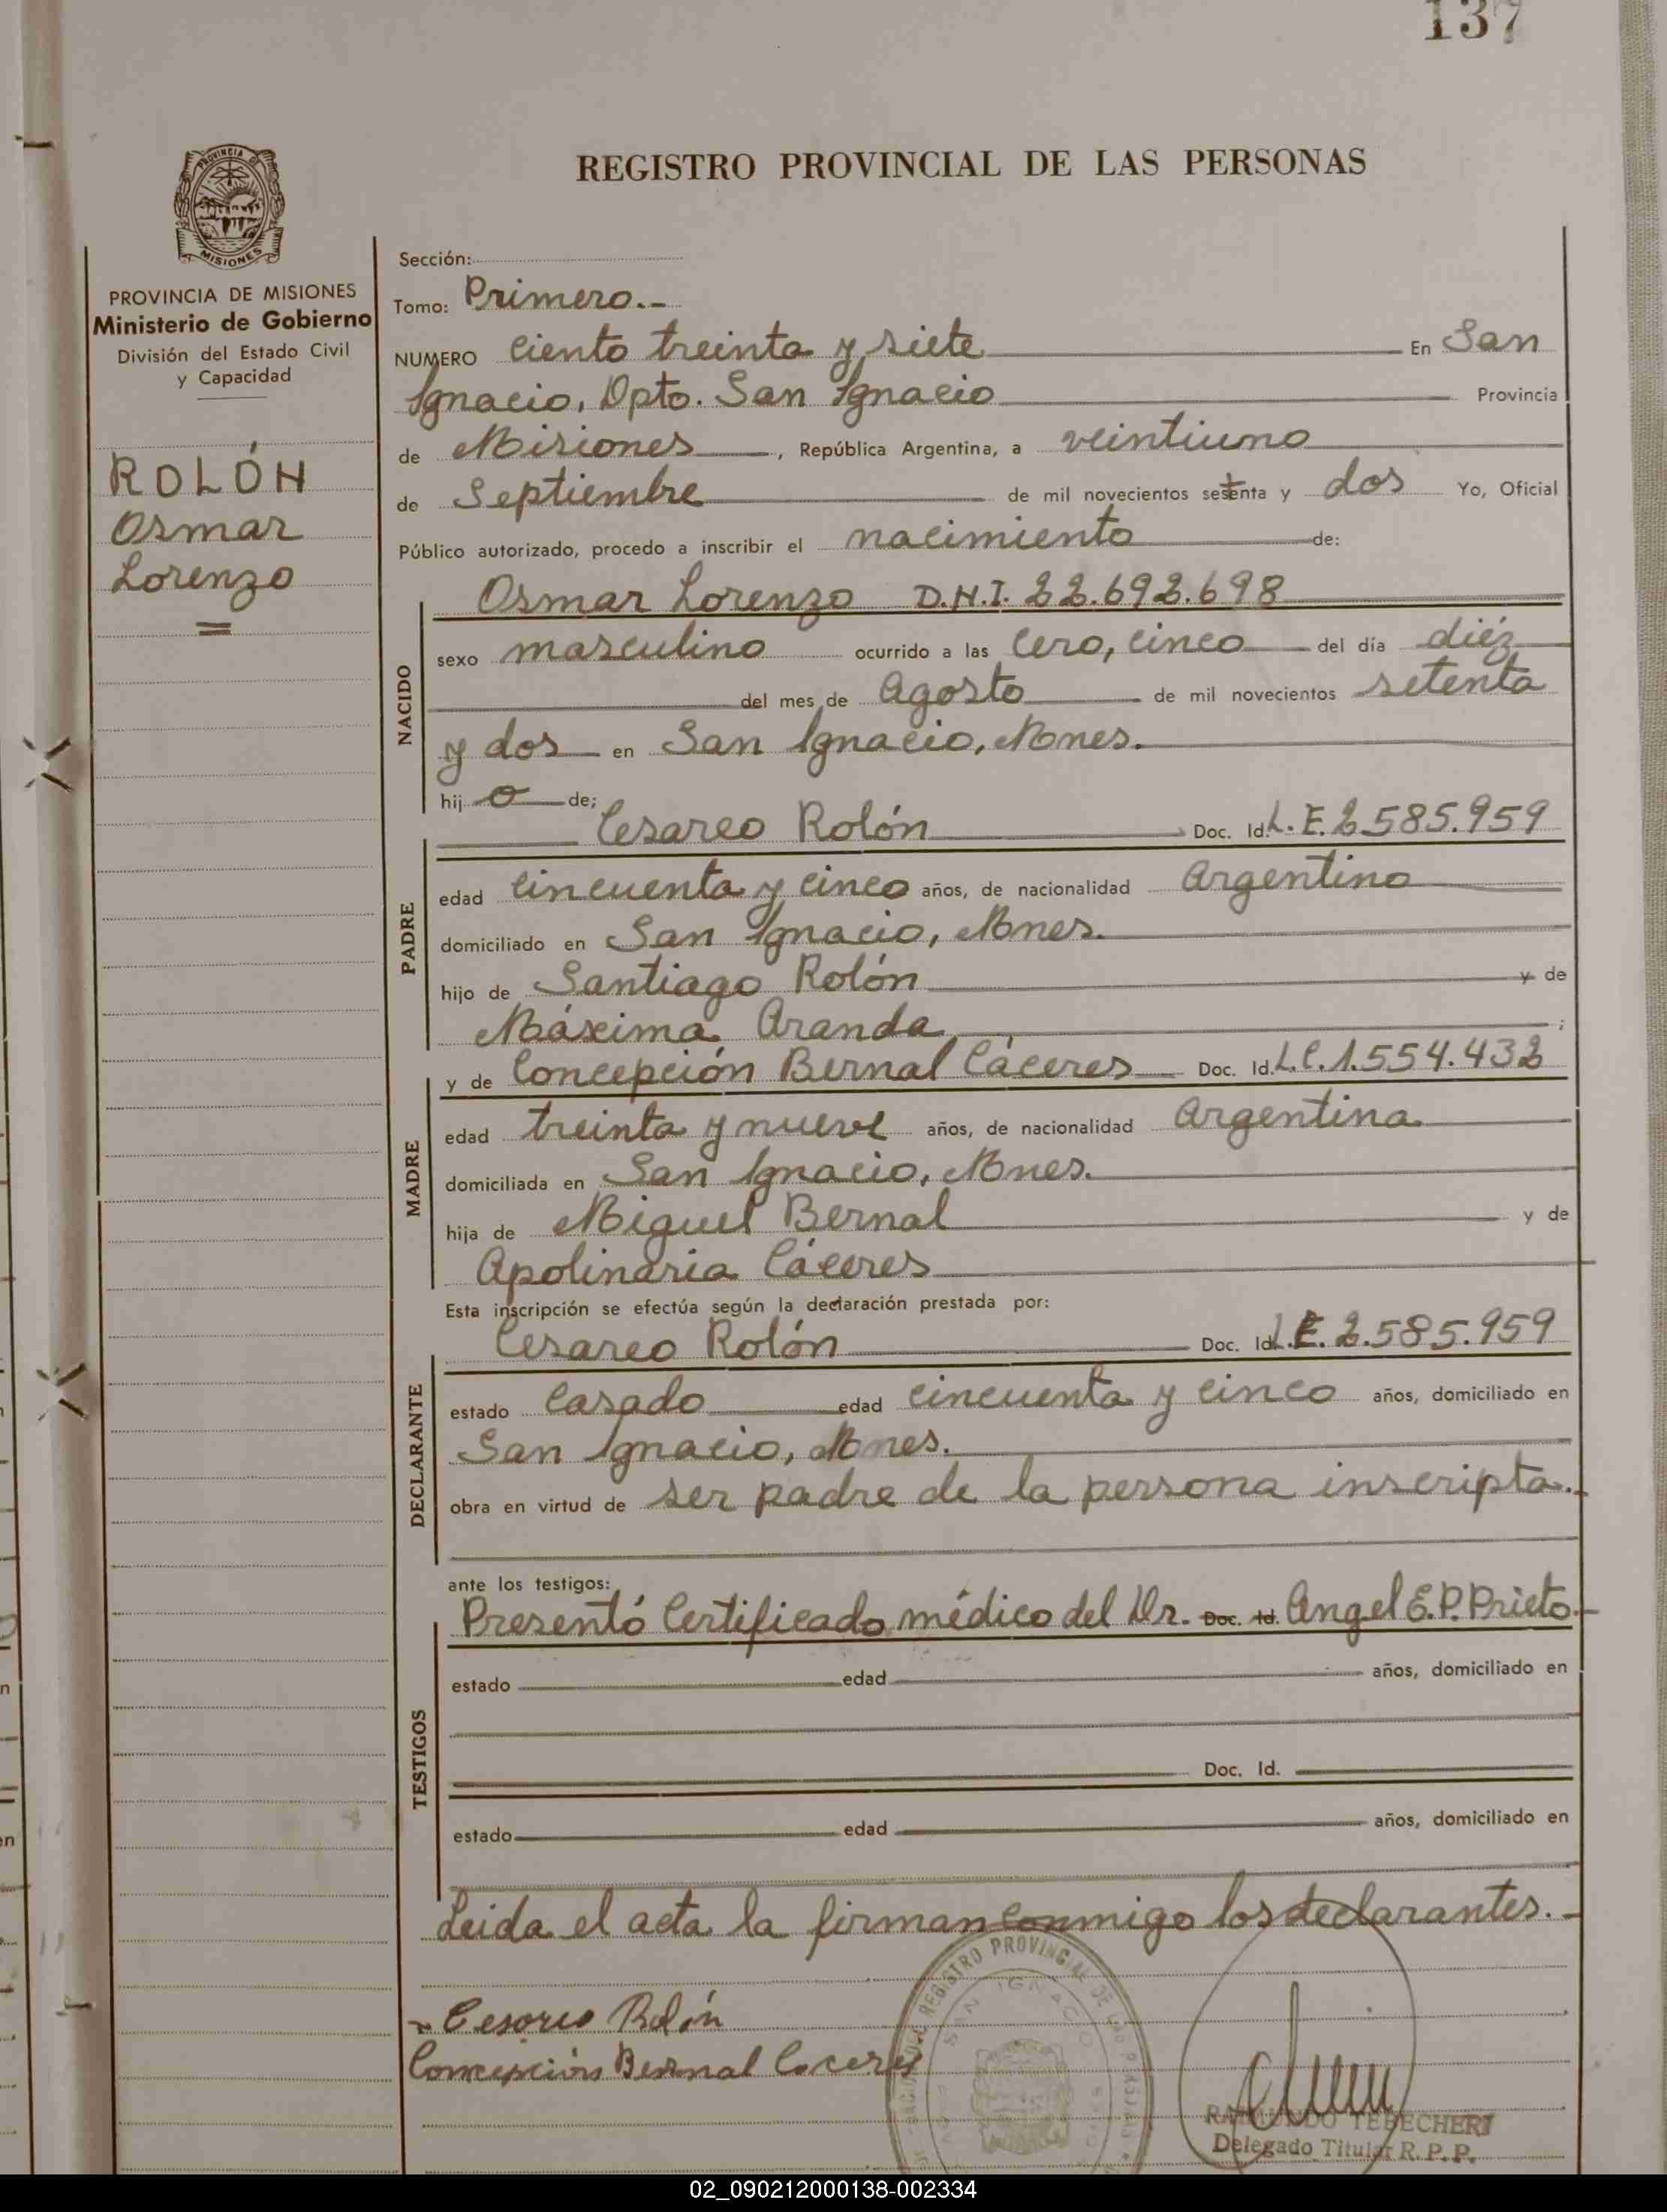 137
REGISTRO PROVINCIAL DE LAS PERSONAS
PROVINCIA DE
MISIONES
PROVINCIA DE MISIONES
Ministerio de Gobierno
División del Estado Civil
y Capacidad
ROLÓN
Osmar
Lorenzo
=
Sección:
Tomo: Primero.-
NUMERO Ciento treinta y siete En San
Ignacio, Dpto. San Ignacio Provincia
de Misiones, República Argentina, a veintiuno
de Septiembre de mil novecientos setenta y dos Yo, Oficial
Público autorizado, procedo a inscribir el nacimiento de:
Osmar Lorenzo D.N.I. 22.692.698
NACIDO
sexo masculino ocurrido a las Cero, cinco del día diéz
del mes de Agosto de mil novecientos setenta
y dos en San Ignacio, Mnes.
hijo de;
Cesareo Rolón Doc. Id. L.E. 2.585.959
PADRE
edad Cincuenta y cinco años, de nacionalidad Argentino
domiciliado en San Ignacio, Mnes.
hijo de Santiago Rolón y de
Máxima Aranda ;
y de Concepción Bernal Cáceres Doc. Id. L.C. 1.554.432
MADRE
edad treinta y nueve años, de nacionalidad Argentina
domiciliada en San Ignacio, Mnes.
hija de Miguel Bernal y de
Apolinaria Cáceres
Esta inscripción se efectúa según la declaración prestada por:
Cesareo Rolón Doc. Id. L.E. 2.585.959
DECLARANTE
estado Casado edad cincuenta y cinco años, domiciliado en
San Ignacio, Mnes.
obra en virtud de ser padre de la persona inscripta.
ante los testigos:
Presentó Certificado médico del Dr. Doc. Id. Angel E.P. Prieto
TESTIGOS
estado edad años, domiciliado en
Doc. Id.
estado edad años, domiciliado en
Leida el acta la firman conmigo los declarantes.-
Cesareo Rolón
Concepción Bernal Caceres
REGISTRO PROVINCIAL DE LAS PERSONAS
SAN IGNACIO
TEBECHERI
Delegado Titular R.P.P.
02_090212000138-002334